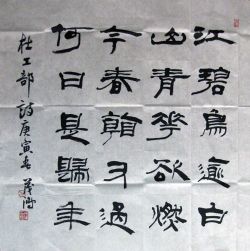 江碧鳥逾白
山青花欲燃
今春看又過
何日是歸年
杜工部詩庚寅春